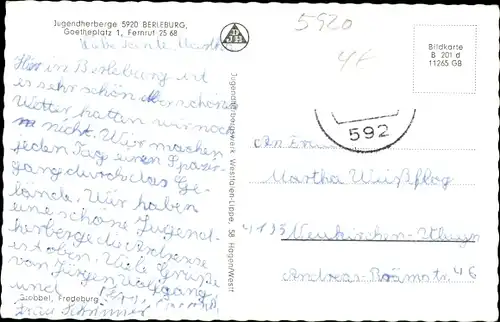 Jugendherberge 5920 BERLEBURG,
Goetheplatz 1, Fernruf 25 68
Liebe Tante Martha
Hier in Berleburg ist
es sehr schön aber schönes
Wetter hatten wir noch
nicht. Wir machen
jeden Tag einen Spazier-
gang durch das Ge-
lände. Wir haben
eine schöne Jugend-
herberge die Adresse
ist oben. Viele Grüße
von Jürgen Wolfgang
und
Stobbel, Fredeburg
Frau
Jugendherbergswerk Westfalen-Lippe, 58 Hagen/Westf
5920
Bildkarte
B 201 d
11265 GB
592
An Frau
Martha Weißflog
4133 Neukirchen-Vluyn
Andreas Bräm str. 46